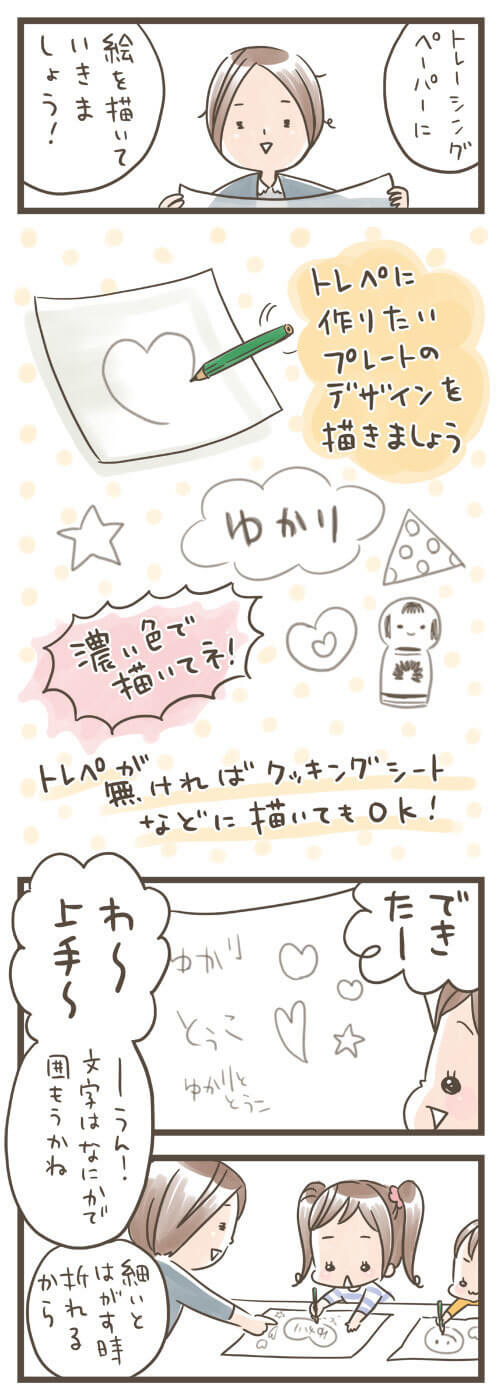 トレーシング
ペーパーに
絵を描いて
いきま
しょう!
トレペに
作りたい
プレートの
デザインを
描きましょう
ゆかり
濃い色で
描いてネ!
トレペが
無ければクッキングシート
などに描いてもOK!
でき
たー
ゆかり
とうこ
ゆかりと
とうこ
わ〜
上手〜
ーうん!
文字はなにかで
囲もうかね
細いと
はがす時
折れる
から